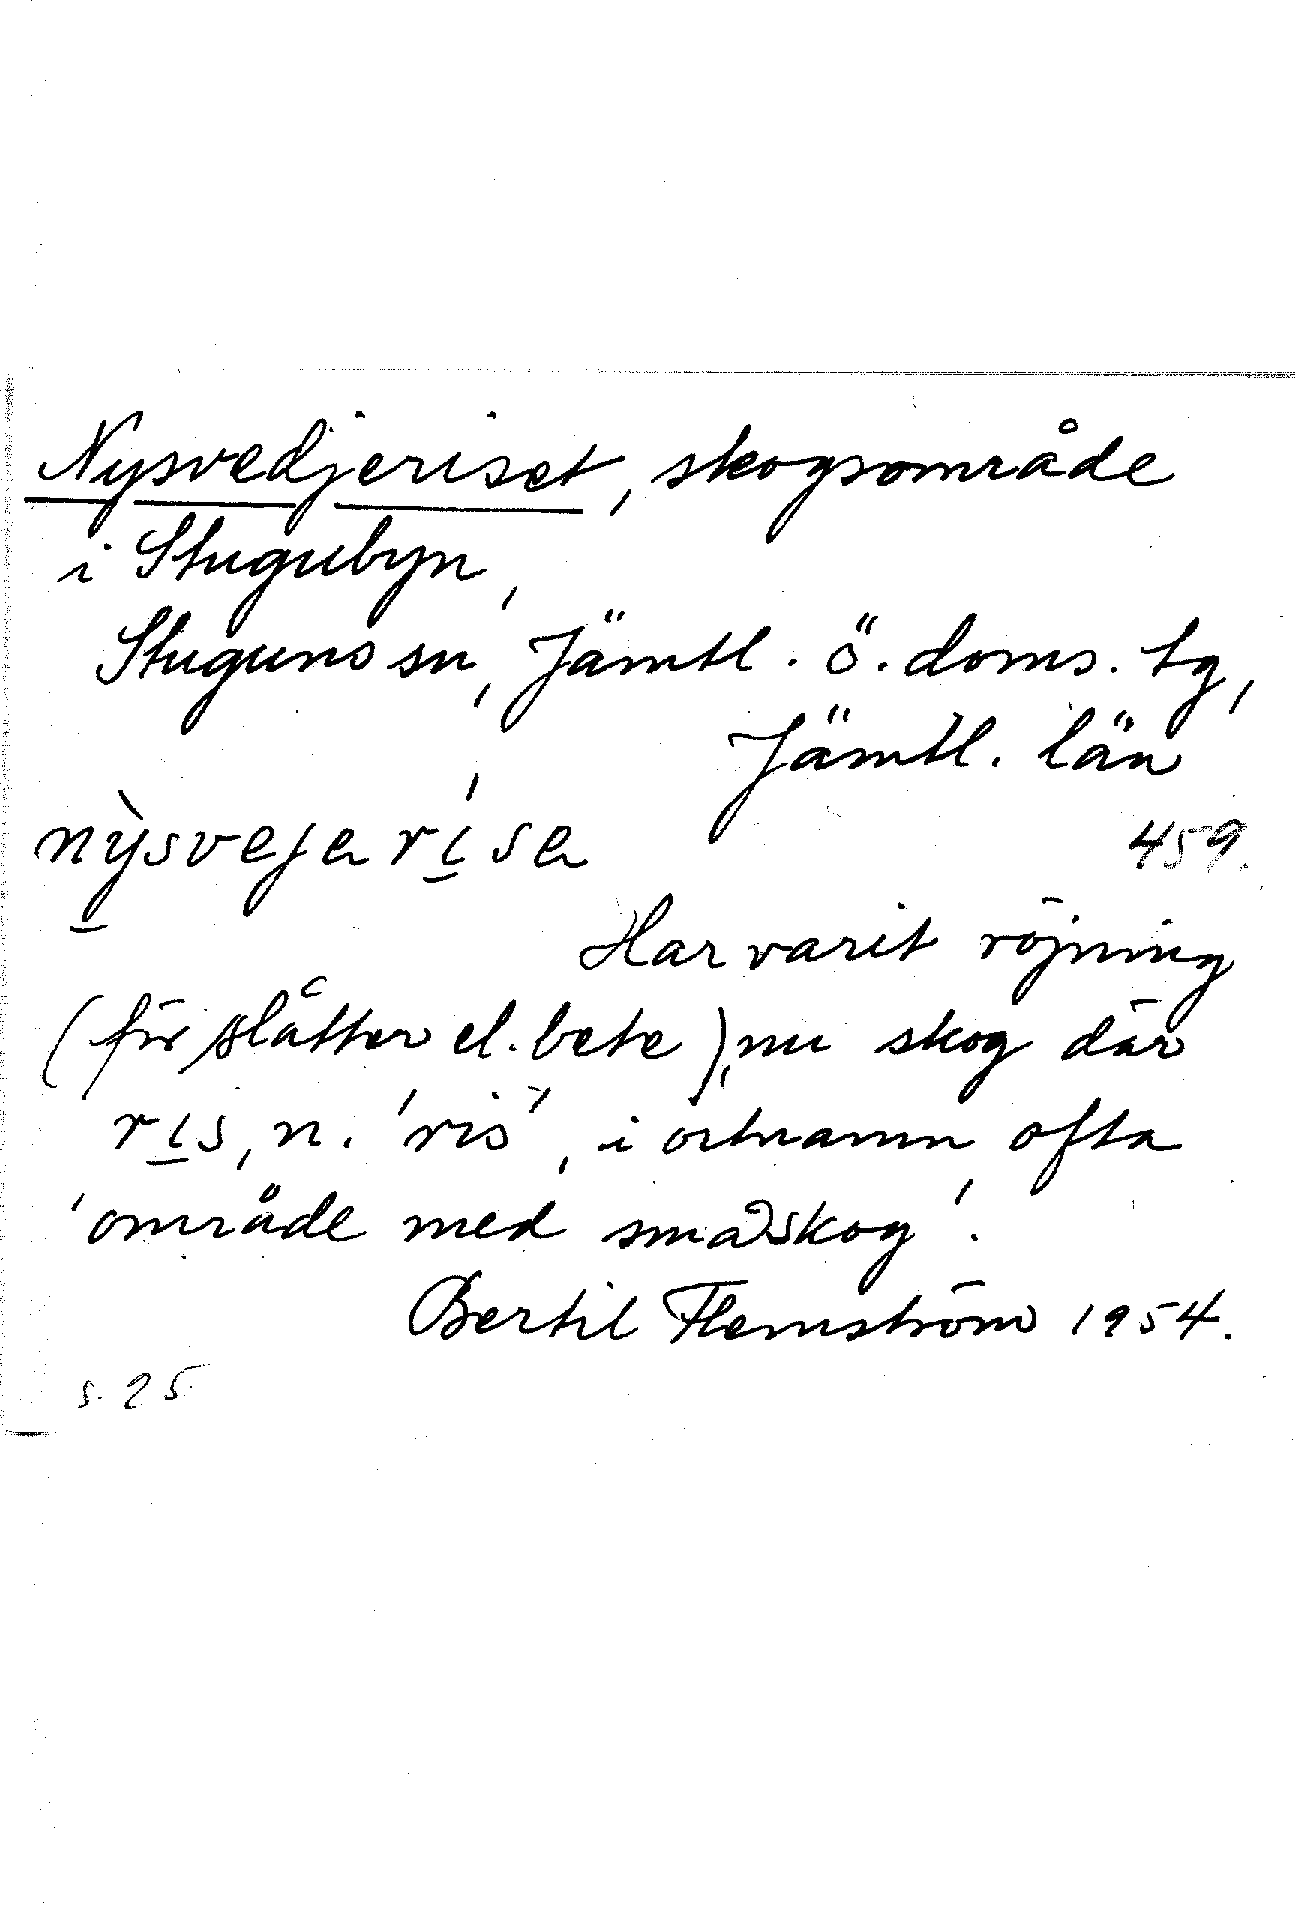 Nysvedjeriset, skogsområde
i Stugubyn,
Stuguns sn, Jämtl. ö. doms. tg,
Jämtl. län
nỳsvejarísa 459.
Har varit röjning
(för slåtter el. bete), nu skog där
rɩs, n. 'ris', i ortnamn ofta
'område med småskog'.
Bertil Flemström 1954.
s. 25